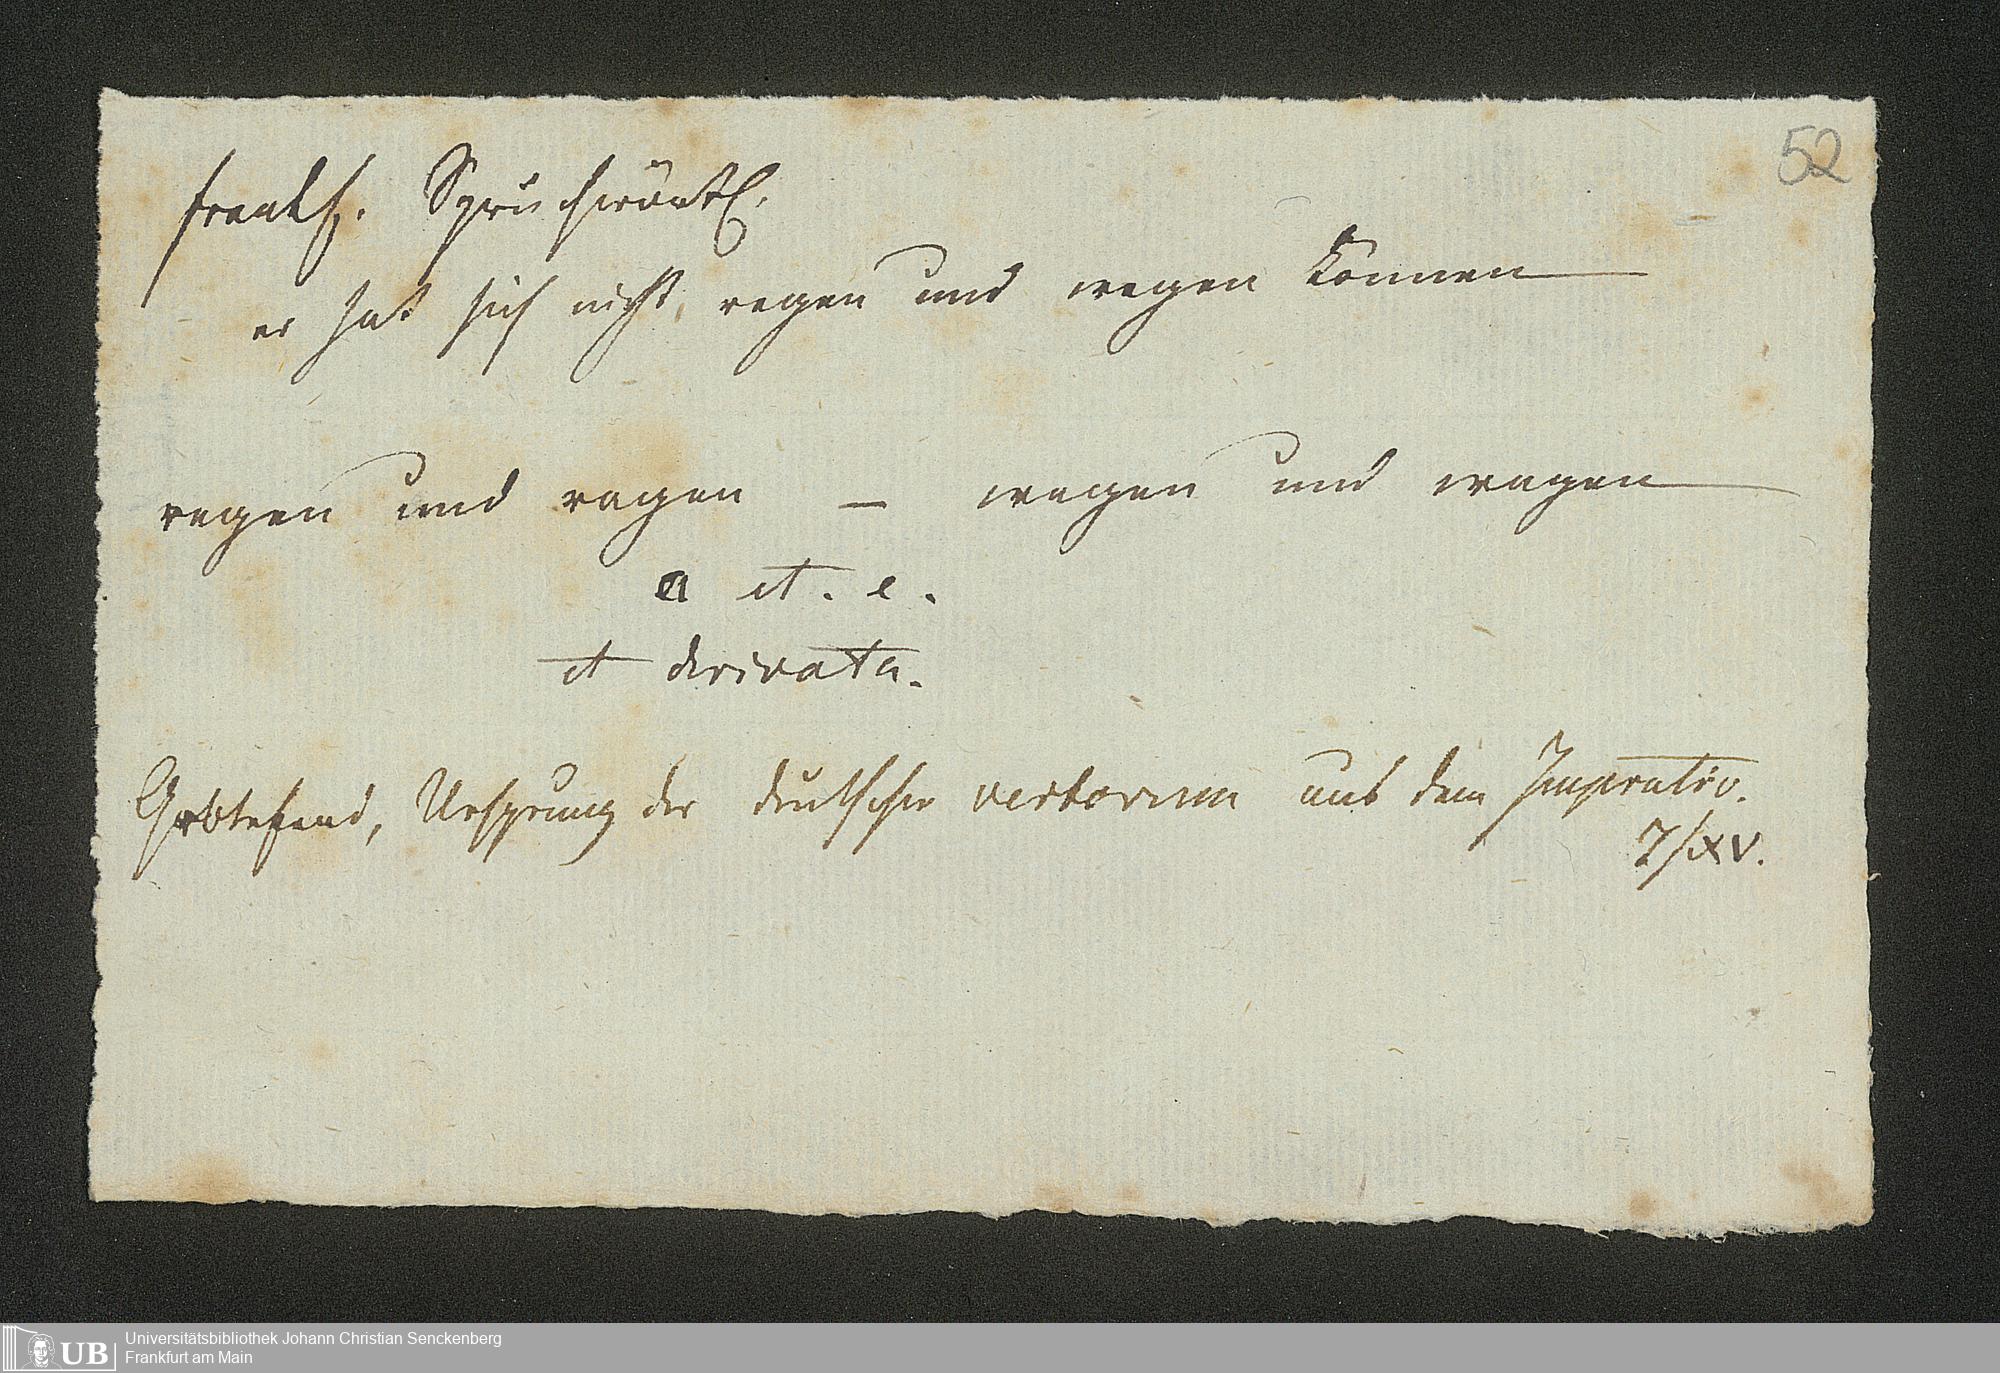 52
frankf. Sprüchwörtl.
er hat sich nicht, regen und wegen können
regen und ragen — wegen und wagen
a et. e.
et derivata.
Grotefend, Ursprung der deutschen verborum aus dem Imperativ.
7/XV.
UB
Universitätsbibliothek Johann Christian Senckenberg
Frankfurt am Main